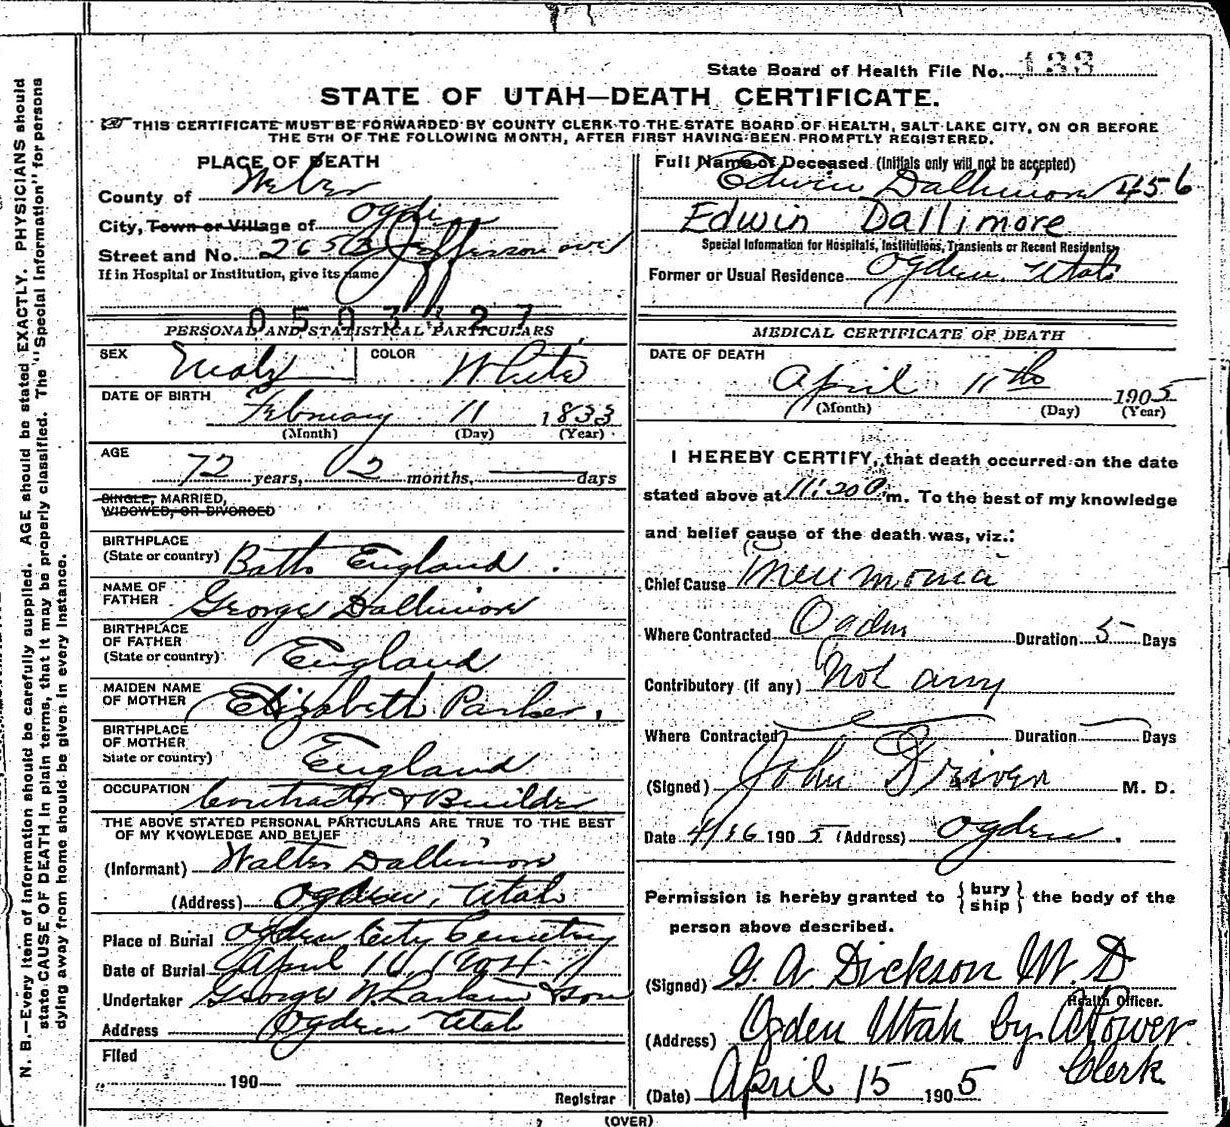 State Board of Health File No. 133
STATE OF UTAH—DEATH CERTIFICATE.
THIS CERTIFICATE MUST BE FORWARDED BY COUNTY CLERK TO THE STATE BOARD OF HEALTH, SALT LAKE CITY, ON OR BEFORE
THE 5TH OF THE FOLLOWING MONTH, AFTER FIRST HAVING BEEN PROMPTLY REGISTERED.
PLACE OF DEATH
County of Weber
City, Town or Village of Ogden
Street and No. 2653 Jefferson ave
If in Hospital or Institution, give its name
0503327
PERSONAL AND STATISTICAL PARTICULARS
SEX Male COLOR White
DATE OF BIRTH
February 11 1833
(Month) (Day) (Year)
AGE
72 years, 02 months, days
SINGLE, MARRIED,
WIDOWED, OR DIVORCED
BIRTHPLACE
(State or country) Bath England.
NAME OF
FATHER George Dallimore
BIRTHPLACE
OF FATHER
(State or country) England
MAIDEN NAME
OF MOTHER Elizabeth Parker.
BIRTHPLACE
OF MOTHER
State or country) England
OCCUPATION Contractor & Builder
THE ABOVE STATED PERSONAL PARTICULARS ARE TRUE TO THE BEST
OF MY KNOWLEDGE AND BELIEF
(Informant) Walter Dallimore
(Address) Ogden, Utah
Place of Burial Ogden City Cemetery
Date of Burial April 16, 1904
Undertaker George W. Larkin & Son
Address Ogden Utah
Filed
190
Registrar
Full Name of Deceased (Initials only will not be accepted)
Edwin Dallimore 456
Edwin Dallimore
Special Information for Hospitals, Institutions, Transients or Recent Residents.
Former or Usual Residence Ogden Utah
MEDICAL CERTIFICATE OF DEATH
DATE OF DEATH
April 11th 1905
(Month) (Day) (Year)
I HEREBY CERTIFY, that death occurred on the date
stated above at 11:20 P.m. To the best of my knowledge
and belief cause of the death was, viz.:
Chief Cause Pneumonia
Where Contracted Ogden Duration 5 Days
Contributory (if any) Not any
Where Contracted Duration Days
(Signed) John Driver M. D.
Date 4/16 1905 (Address) Ogden.
Permission is hereby granted to { bury ship } the body of the
person above described.
(Signed) G. A. Dickson M. D
Health Officer.
(Address) Ogden Utah by A Power
Clerk
(Date) April 15 1905
(OVER)
N. B.—Every item of information should be carefully supplied. AGE should be stated EXACTLY. PHYSICIANS should
state CAUSE OF DEATH in plain terms, that it may be properly classified. The "Special Information" for persons
dying away from home should be given in every instance.